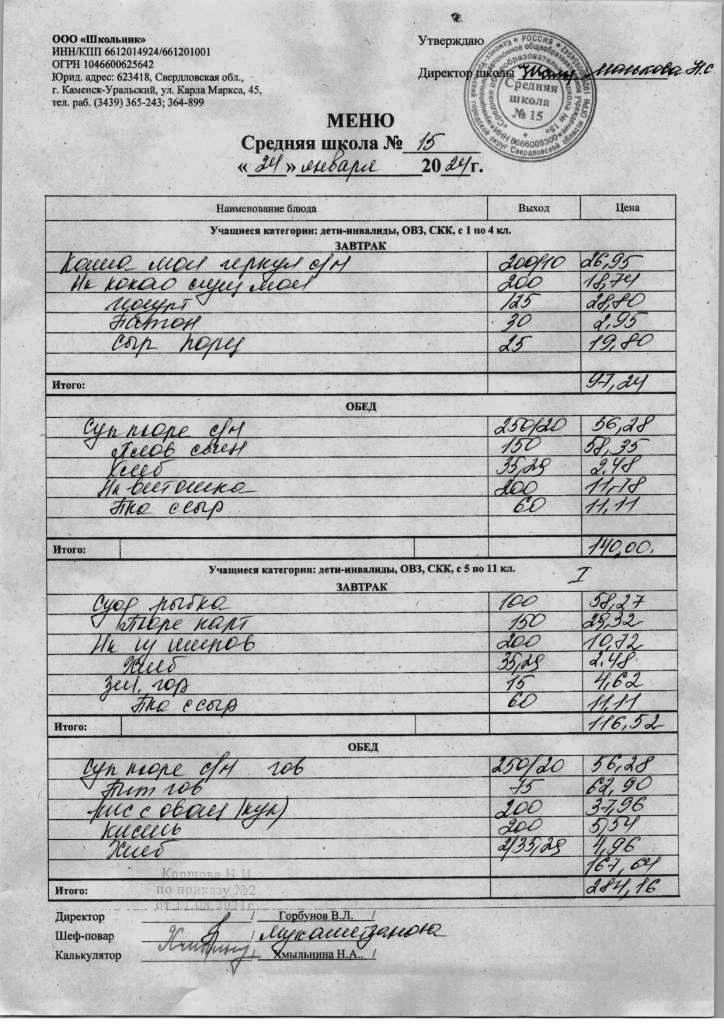 ООО «Школьник»
ИНН/КПП 6612014924/661201001
ОГРН 1046600625642
Юрид. адрес: 623418, Свердловская обл.,
г. Каменск-Уральский, ул. Карла Маркса, 45,
тел. раб. (3439) 365-243; 364-899
Утверждаю
Директор школы Манькова Н.С
Средняя
школа
№ 15
МЕНЮ
Средняя школа № 15
« 24 » января 2024г.
Наименование блюда Выход Цена
Учащиеся категории: дети-инвалиды, ОВЗ, СКК, с 1 по 4 кл.
ЗАВТРАК
Каша мол геркул с/м 200/10 26,95
Нк какао сгущ мол 200 18,74
Йогурт 125 28,80
Батон 30 2,95
Сыр порц 25 19,80
Итого: 97,24
ОБЕД
Суп пюре с/м 250/20 56,28
Плов свин 150 58,35
Хлеб 35,29 2.48
Нк витошка 200 11,78
Пка с сыр 60 11,11
Итого: 140,00.
Учащиеся категории: дети-инвалиды, ОВЗ, СКК, с 5 по 11 кл. I
ЗАВТРАК
Суфл рыбка 100 58,27
Пюре карт 150 29,32
Нк ш шипов 200 10,72
Хлеб 35,29 2.48
Зел. гор 15 4,62
Пка с сыр 60 11,11
Итого: 116,52
ОБЕД
Суп пюре с/м гов 250/20 56,28
Бит гов 75 62,90
Рис с овощ (кук) 200 37,96
Кисель 200 5,54
Хлеб 2/35,29 4,96
167,64
Коршова Н.И
по приказу №2
Итого: 284,16
Директор / Горбунов В.Л. /
Шеф-повар /
Калькулятор / Хмыльнина Н.А.. /